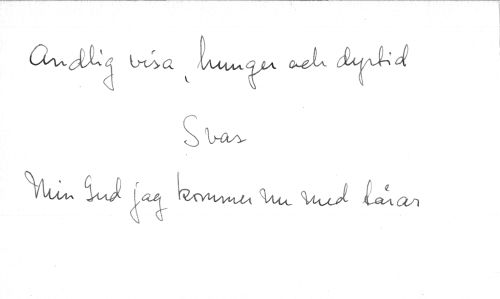 Andlig visa, hunger och dyrtid
Svar
Min Gud jag kommer nu med tårar